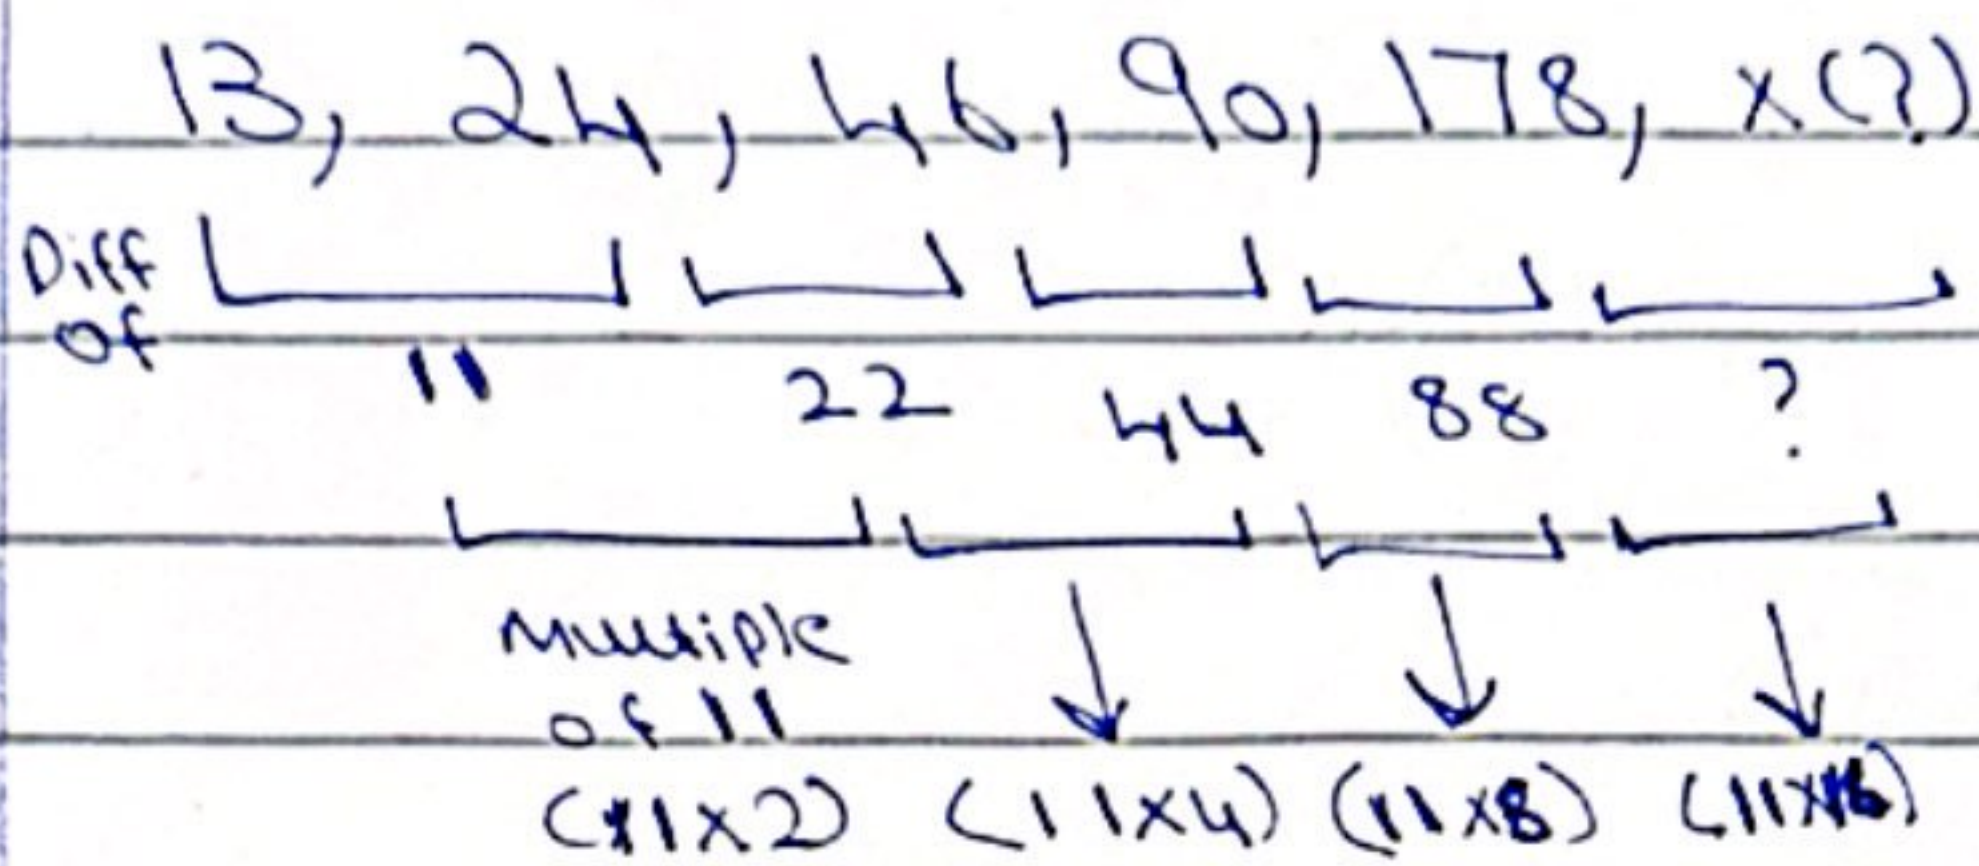 13, 24, 46, 90, 178, x(?)
Diff
of
11 22 44 88 ?
Multiple
of 11
(11x2) (11x4) (11x8) (11x16)